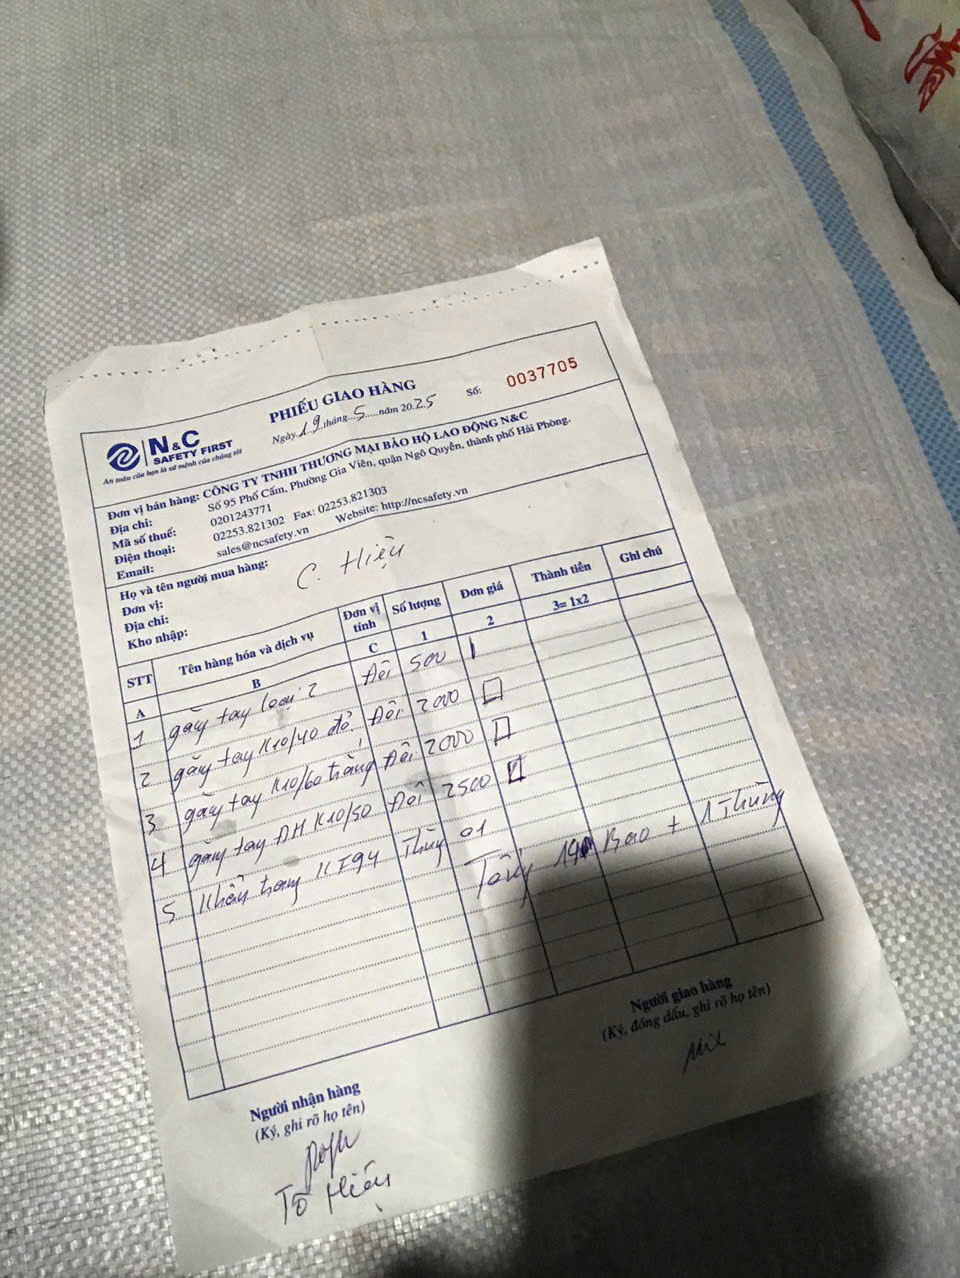 清
N&C
SAFETY FIRST
An toàn của bạn là sứ mệnh của chúng tôi
PHIẾU GIAO HÀNG
Ngày 19 tháng 5 năm 2025
Số: 0037705
Đơn vị bán hàng: CÔNG TY TNHH THƯƠNG MẠI BẢO HỘ LAO ĐỘNG N&C
Địa chỉ: Số 95 Phố Cấm, Phường Gia Viên, quận Ngô Quyền, thành phố Hải Phòng.
Mã số thuế: 0201243771
Điện thoại: 02253.821302 Fax: 02253.821303
Email: sales@ncsafety.vn Website: http://ncsafety.vn
Họ và tên người mua hàng: C. Hiệu
Đơn vị:
Địa chỉ:
Kho nhập:
STT Tên hàng hóa và dịch vụ Đơn vị tính Số lượng Đơn giá Thành tiền Ghi chú
A B C 1 2 3= 1x2
1 găng tay loại 2 Đôi 500
2 găng tay K10/40 đỏ Đôi 2000
3 găng tay K10/60 trắng Đôi 2000
4 găng tay ĐH K10/50 Đôi 2500
5 Khẩu trang KF94 Thùng 01
Tổng 14 Bao + 1 Thùng
Người giao hàng
(Ký, đóng dấu, ghi rõ họ tên)
Người nhận hàng
(Ký, ghi rõ họ tên)
Tô Hiếu